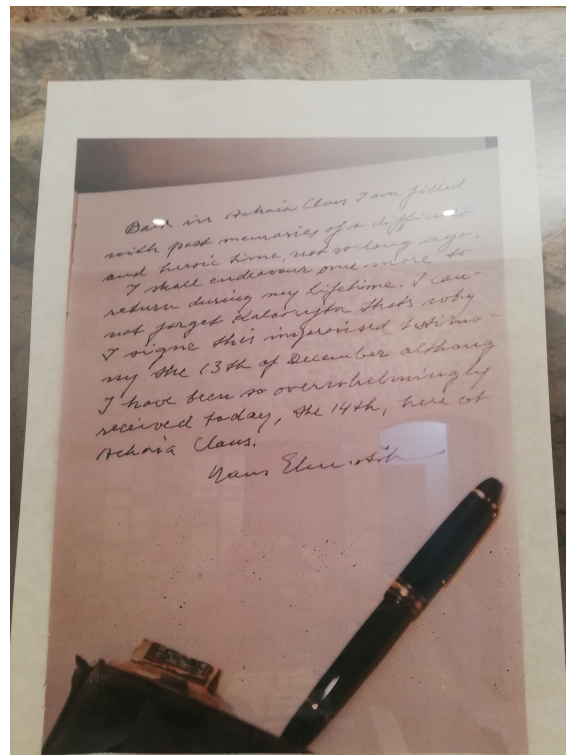 Back in Achaia Claus I am filled
with past memories of a difficult
and heroic time, not so long ago.
I shall endeavour one more to
return during my lifetime. I can-
not forget Kalavryta thats why
I signe this improvised testimo-
ny the 13th of December althoug
I have been so overwhelmingly
received today, the 14th, here at
Achaia Claus.